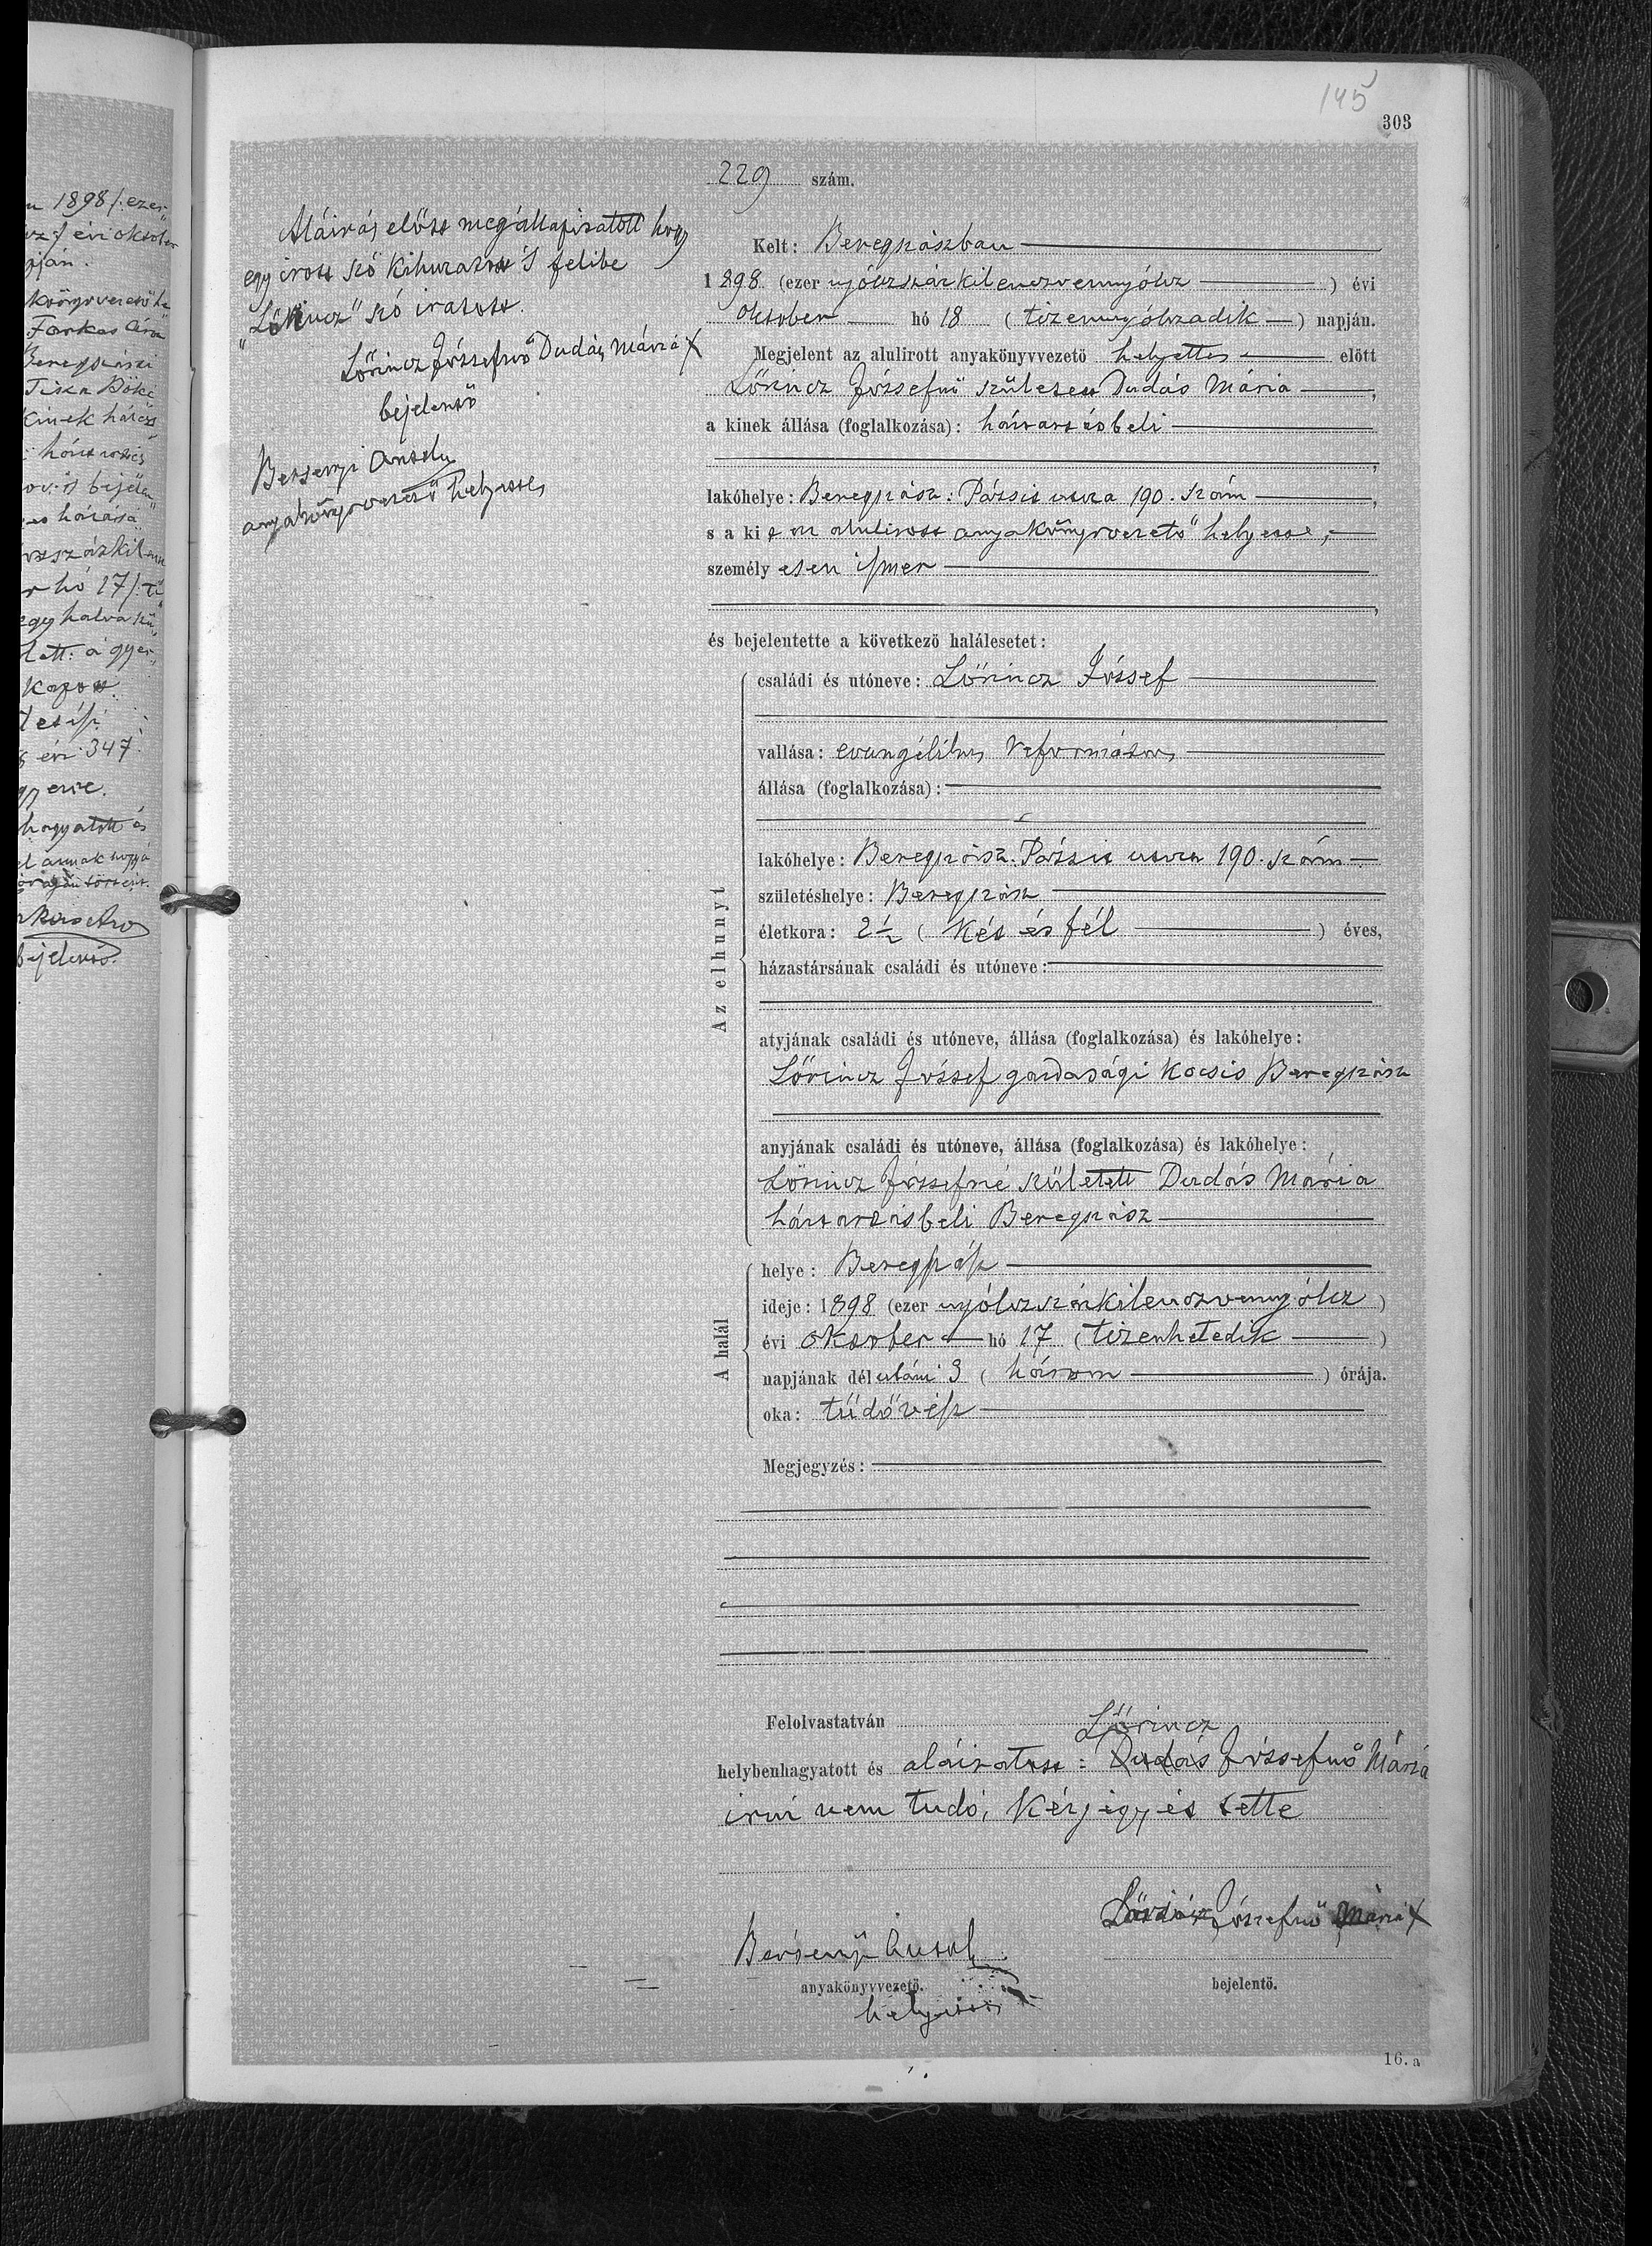 145
303
u 1898 /: ezer
évi október
pján.
Farkas Áron
Beregszászi
kinek házas
s bejelen
hó 17 /: ti
egy halva szü
lett: a gyer
évi 347
hagyatott és
bejelentő.
229 szám.
Aláirás előtt megállapitatott hogy
egy irott szó kihuzatott s felibe
"Lőrincz" szó iratott.
Lőrincz Józsefnő Dudás Mária X
bejelentő
Bersenyi Antal
anyakönyvvezető helyettes
Kelt: Beregszászban
1898 (ezer nyolczszázkilenczvennyólcz ) évi
október hó 18 ( tizennyólczadik ) napján.
Megjelent az alulirott anyakönyvvezető helyettes előtt
Lőrincz Józsefnő született Dudás Mária ,
a kinek állása (foglalkozása): háztartásbeli
,
lakóhelye: Beregszász. utcza 190. szám ,
s a kit az alulirott anyakönyvvezető helyettes,
személyesen ismer
,
és bejelentette a következő halálesetet:
Az elhunyt
családi és utóneve: Lőrincz József
vallása: evangélikus református
állása (foglalkozása):
lakóhelye: Beregszász. utcza 190. szám
születéshelye: Beregszász
életkora: 2½ ( két és fél ) éves,
házastársának családi és utóneve:
atyjának családi és utóneve, állása (foglalkozása) és lakóhelye:
Lőrincz József gazdasági kocsis Beregszász
anyjának családi és utóneve, állása (foglalkozása) és lakóhelye:
Lőrincz Józsefné született Dudás Mária
háztartásbeli Beregszász
A halál
helye: Beregszász
ideje: 1898 (ezer nyólczszázkilenczvennyólcz )
évi október hó 17 ( tizenhetedik )
napjának délutáni 3 ( három ) órája.
oka: tüdővész
Megjegyzés:
Felolvastatván
Lőrincz
helybenhagyatott és aláiratott: Dudás Józsefnő Mária
irni nem tudó, kézjegyét tette
Lőrincz Józsefnő Mária X
Bersenyi Antal
anyakönyvvezető. bejelentő.
helyettes
16. a